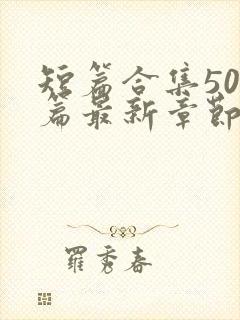 短篇合集50
篇最新章節
羅秀春